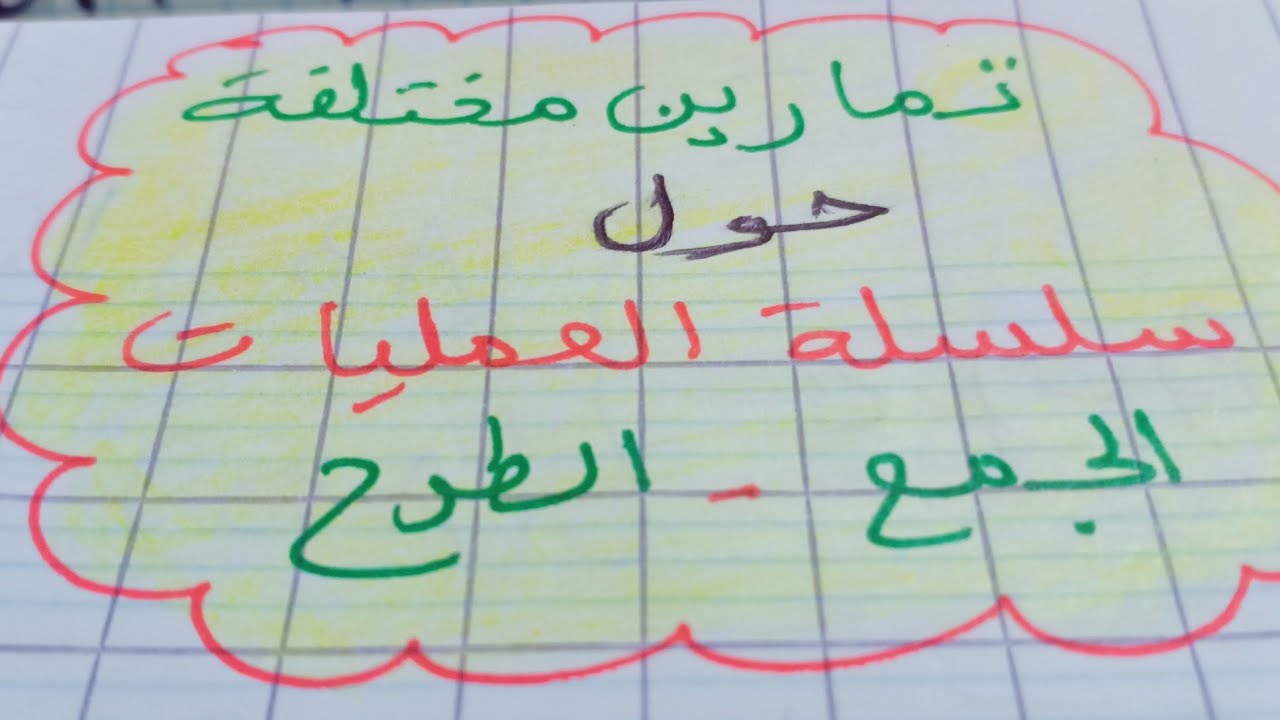 تمارين مختلفة
حول
سلسلة العمليات
الجمع - الطرح